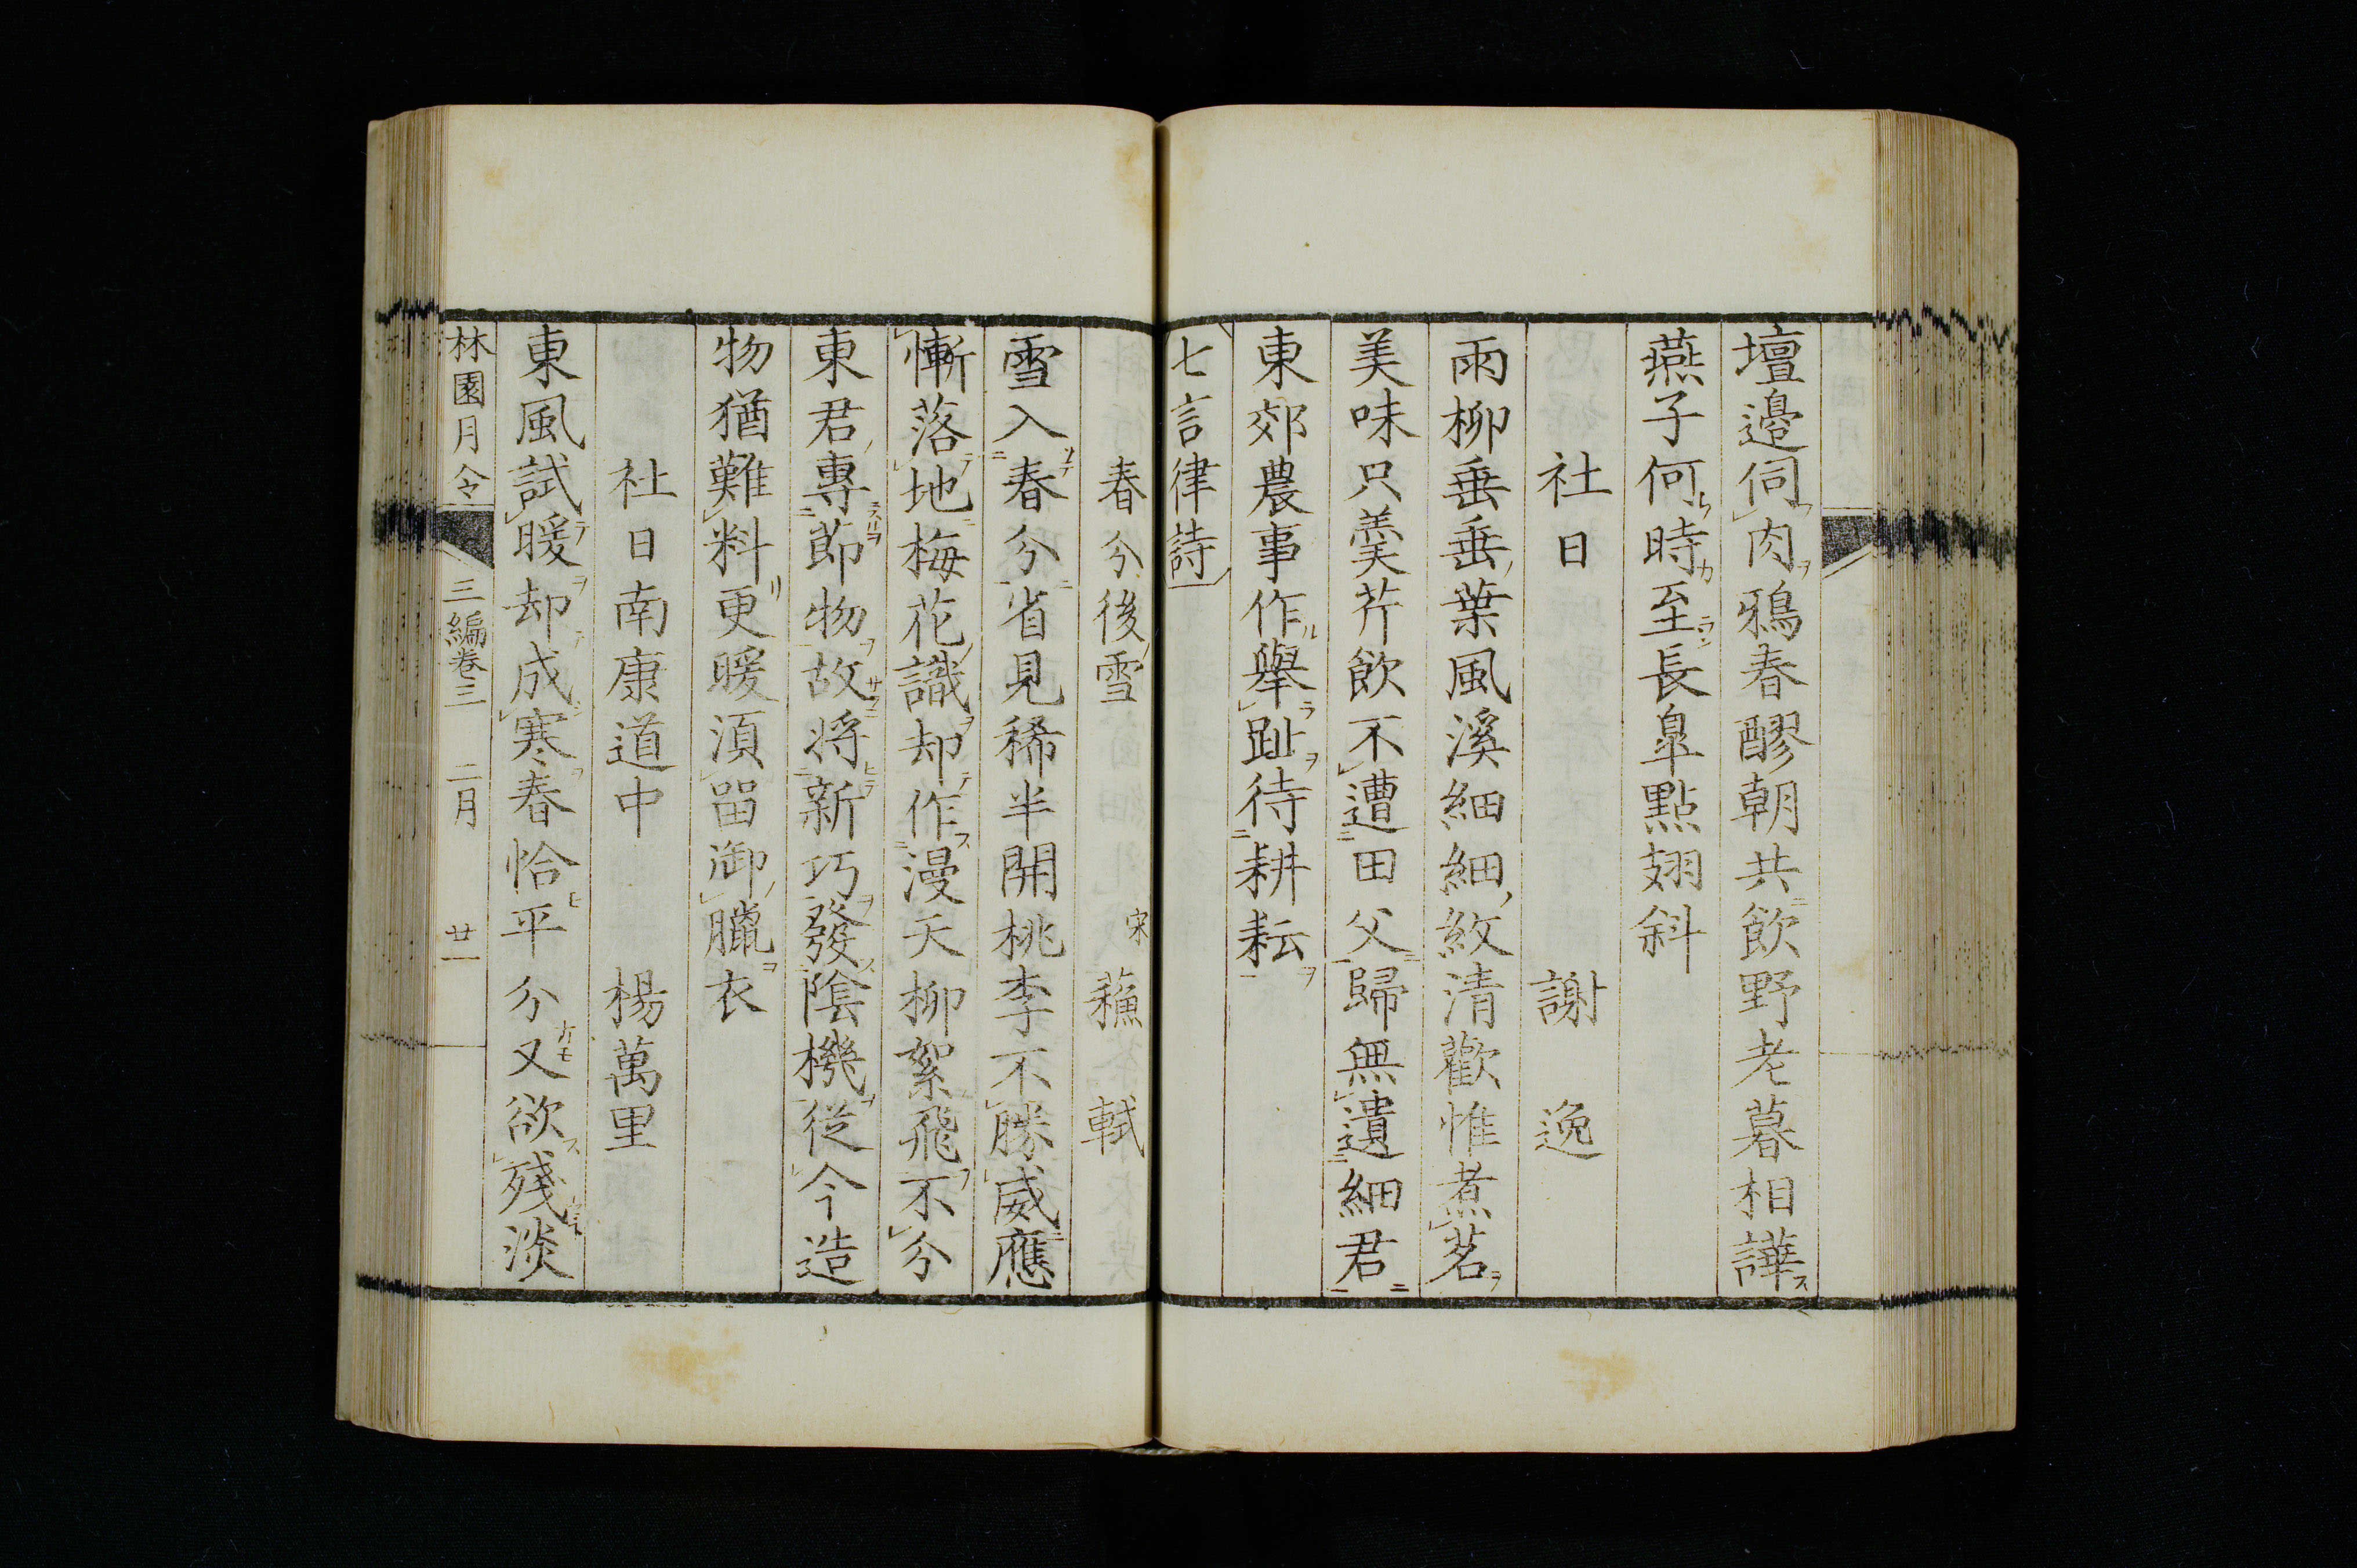 壇邉伺肉鴉春醪朝共飲野老暮相譁
燕子何時至長皐點翅斜
社日　謝逸
雨柳垂垂葉風溪細細紋清歡惟煮茗
美味只羹芹飲不遭田父歸無遺細君
東郊農事作擧趾待耕耘
七言律詩
春分後雪　宋　蘓軾
雪入春分省見稀半開桃李不勝威應
慚落地梅花識却作漫天柳絮飛不分
東君專節物故将新巧發陰機従今造
物猶難料更暖湏留御臘衣
社日南康道中　楊萬里
東風試暖却成寒春恰平分又欲殘淡
林園月令　三編巻三　二月　廿一